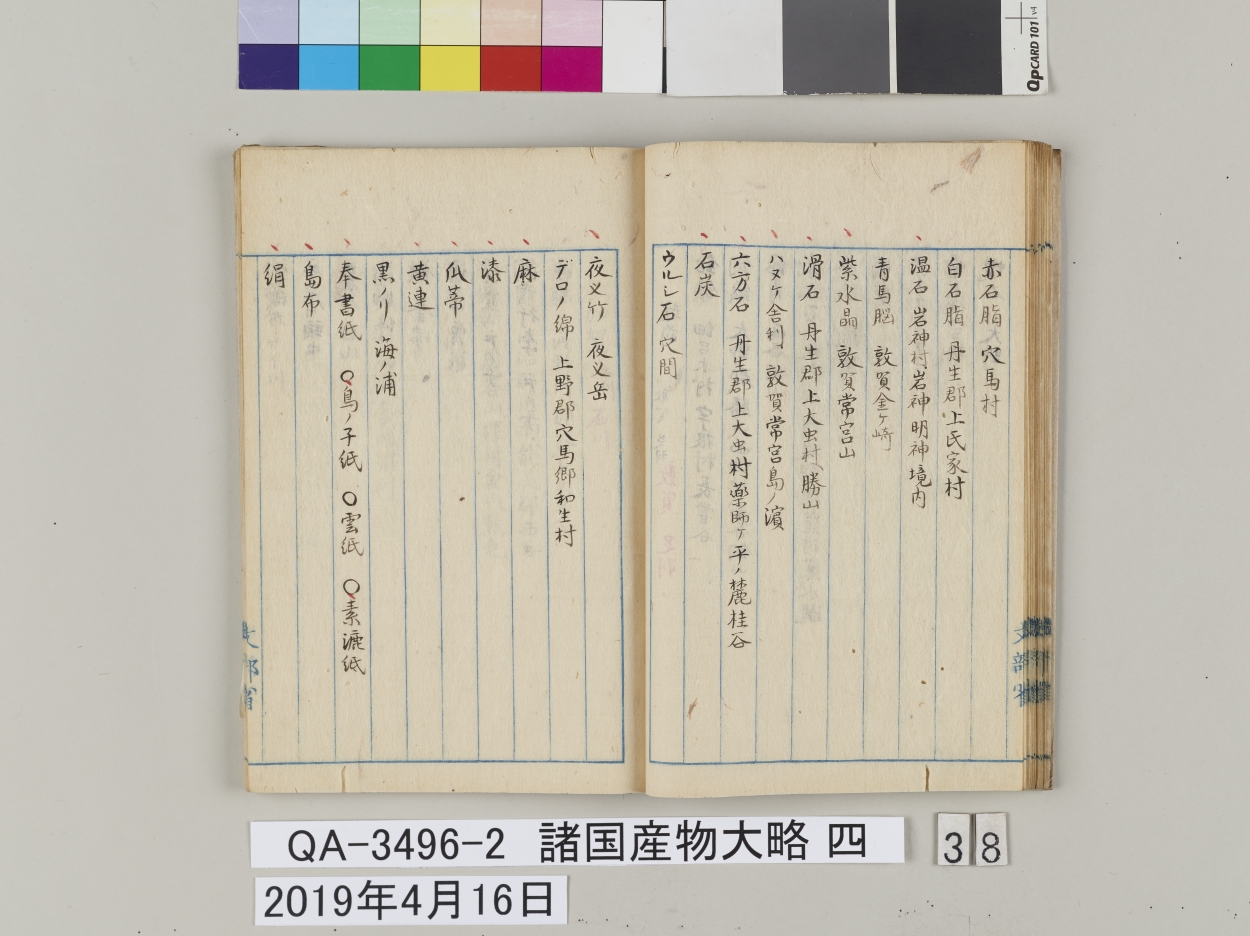 QPCARD 101 v4
赤石脂 穴馬村
白石脂 丹生郡上氏家村
温石 岩神村岩神明神境内
青馬脳 敦賀金ヶ崎
紫水晶 敦賀常宮山
滑石 丹生郡上大虫村勝山
ハヌケ舎利 敦賀常宮島ノ濱
六方石 丹生郡上大虫村藥師ヶ平ノ麓桂谷
石炭
ウルシ石 穴間
夜叉竹 夜叉岳
デロノ綿 上野郡穴馬郷和生村
麻
漆
瓜蒂
黄連
黒ノリ 海ノ浦
奉書紙 〇鳥ノ子紙 〇雲紙 〇素漉紙
島布
絹
文部省
文部省
QA-3496-2 諸国産物大略 四
38
2019年4月16日